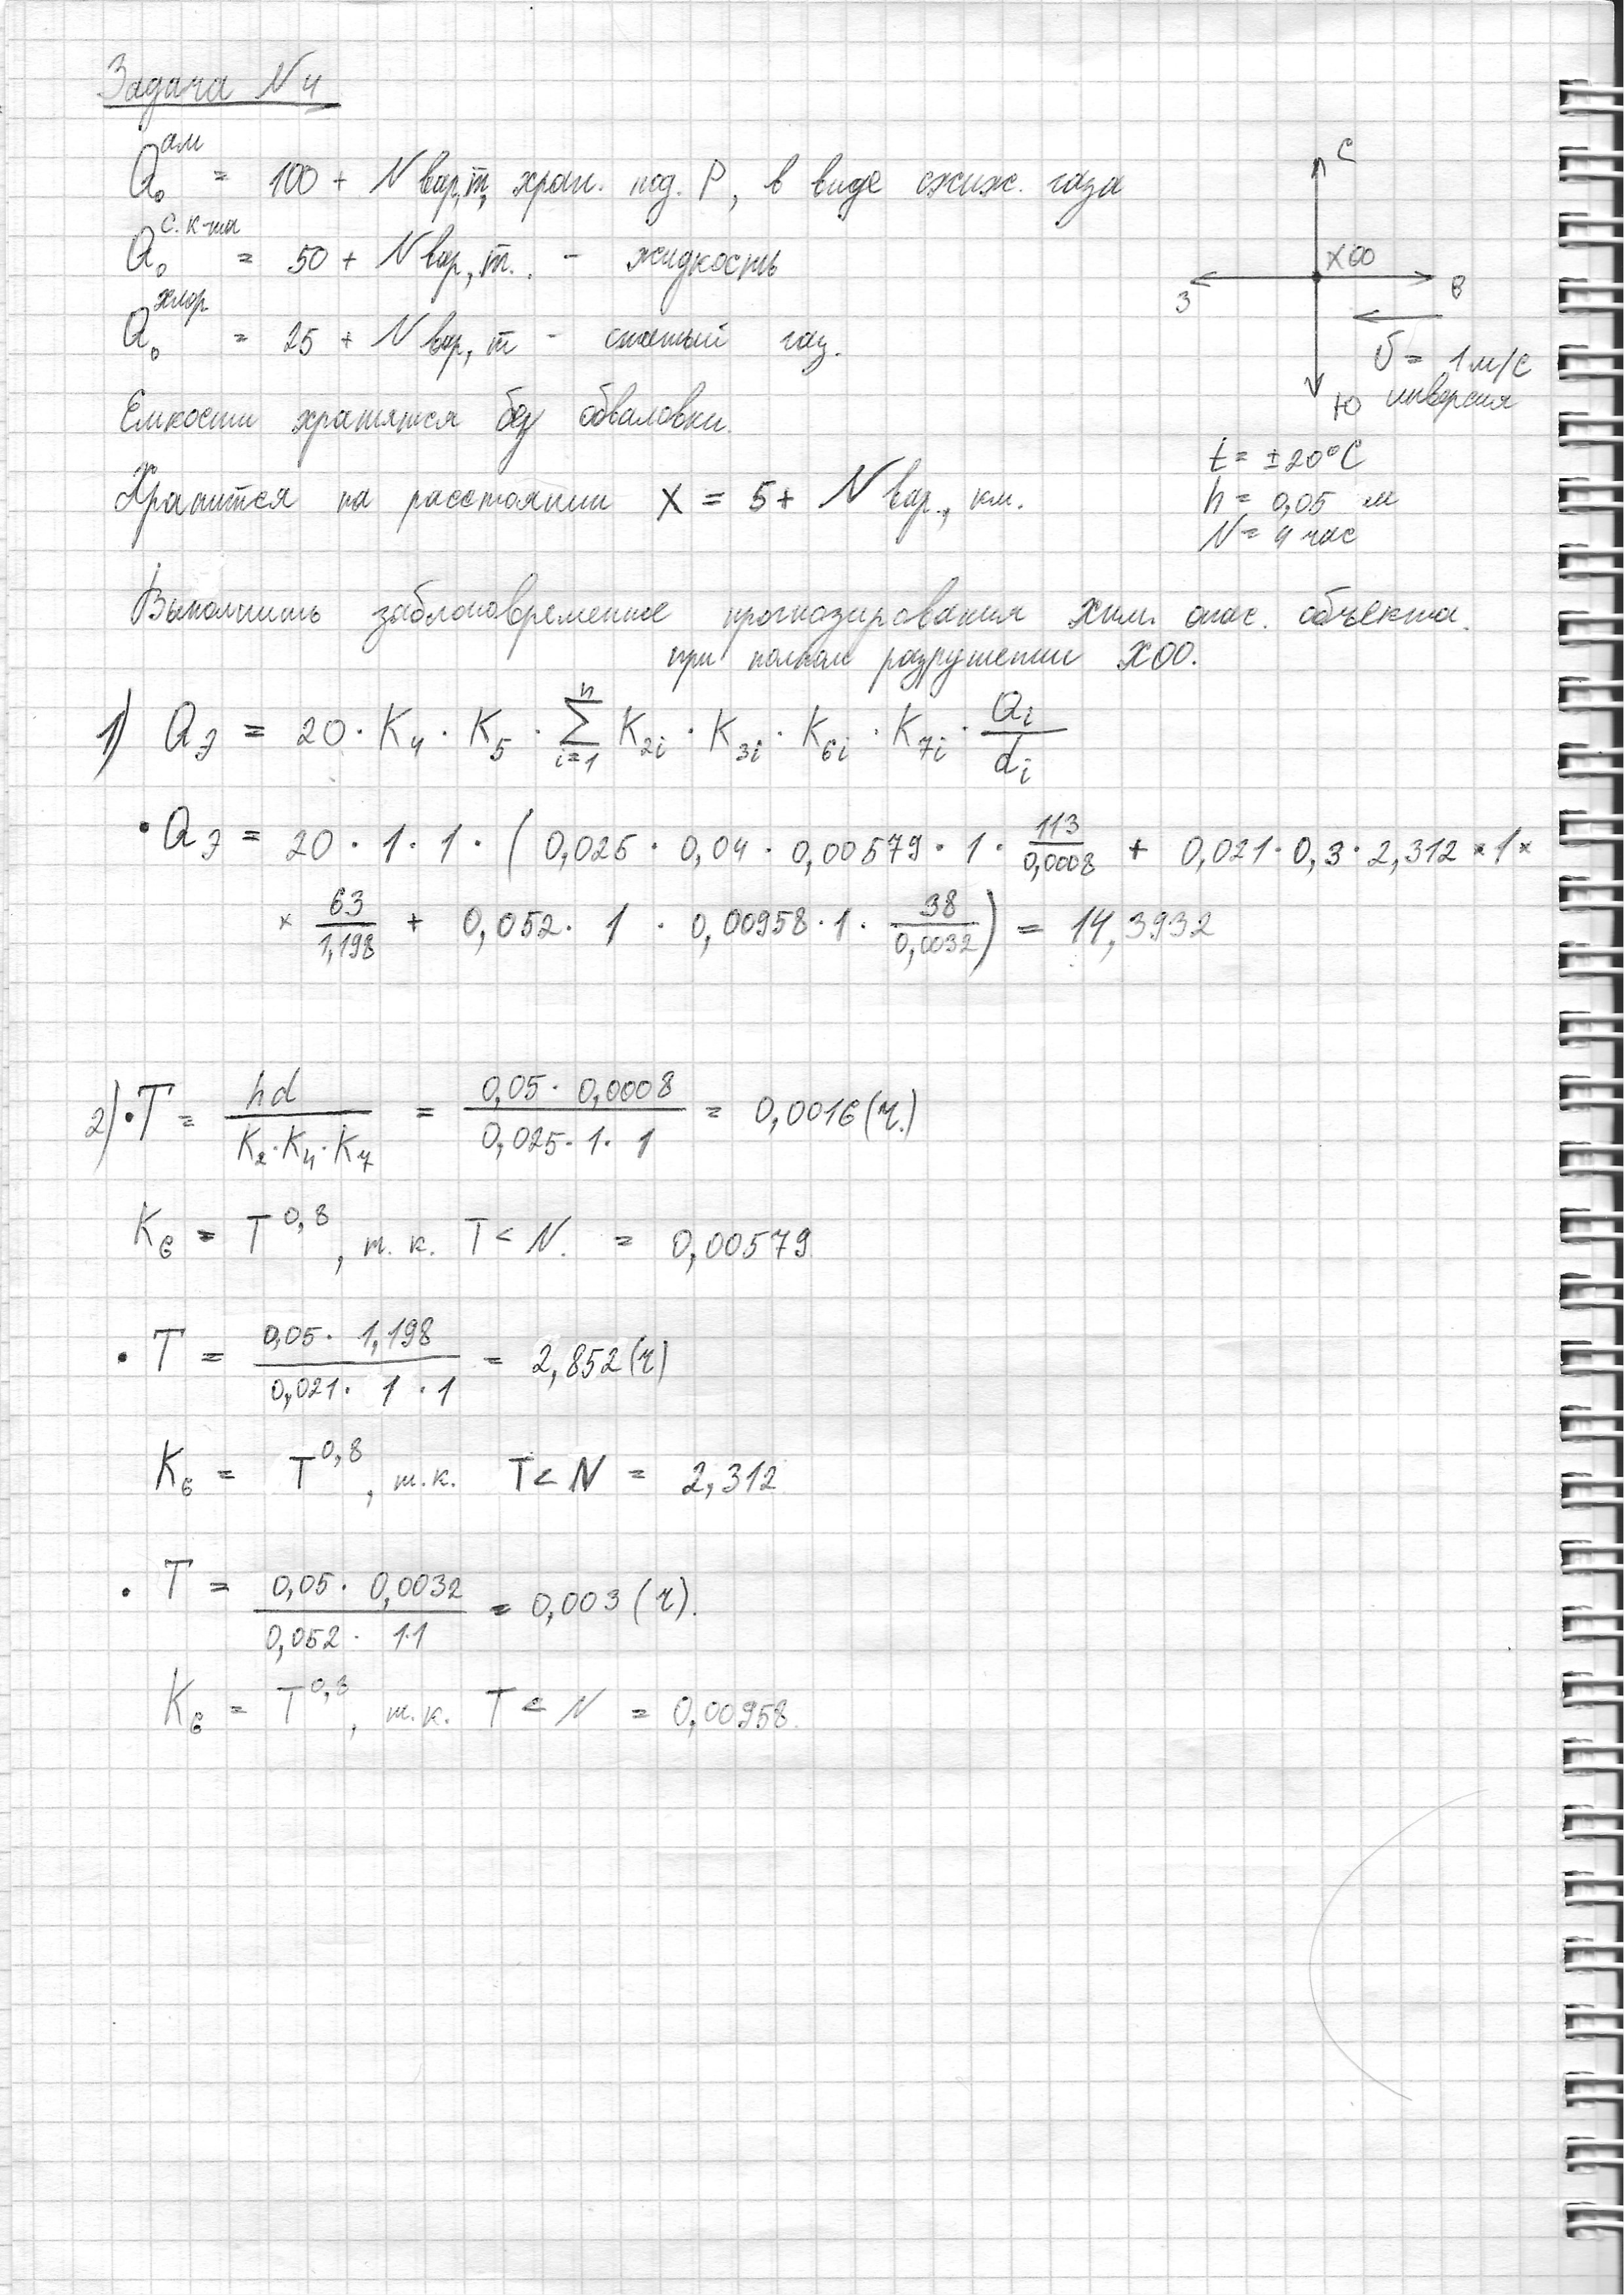 Задача N4
Q₀^ам = 100 + N вар, т, хран. под. P, в виде сжиж. газа
Q₀^с.к-та = 50 + N вар, т. - жидкость
Q₀^хлор = 25 + N вар, т - сжатый газ.
Емкости хранятся без обваловки.
Хранится на расстоянии X = 5 + N вар., км.
С
ХОО
З В
υ = 1 м/с
Ю инверсия
t = ±20°C
h = 0,05 м
N = 4 час
Выполнить заблоговременное прогнозирования хим. опас. объекта.
при полном разрушении ХОО.
1) Qэ = 20 · K₄ · K₅ · ∑ⁿᵢ₌₁ K₂ᵢ · K₃ᵢ · K₆ᵢ · K₇ᵢ · Qᵢ/dᵢ
• Qэ = 20 · 1 · 1 · ( 0,025 · 0,04 · 0,00579 · 1 · 113/0,0008 + 0,021 · 0,3 · 2,312 × 1 ×
× 63/1,198 + 0,052 · 1 · 0,00958 · 1 · 38/0,0032 ) = 14,3932
2) • T = hd/(K₂ · K₄ · K₇) = (0,05 · 0,0008)/(0,025 · 1 · 1) = 0,0016 (ч.)
K₆ = T^0,8, т.к. T < N. = 0,00579
• T = (0,05 · 1,198)/(0,021 · 1 · 1) = 2,852 (ч)
K₆ = T^0,8, т.к. T < N = 2,312
• T = (0,05 · 0,0032)/(0,052 · 1·1) = 0,003 (ч).
K₆ = T^0,8, т.к. T < N = 0,00958.